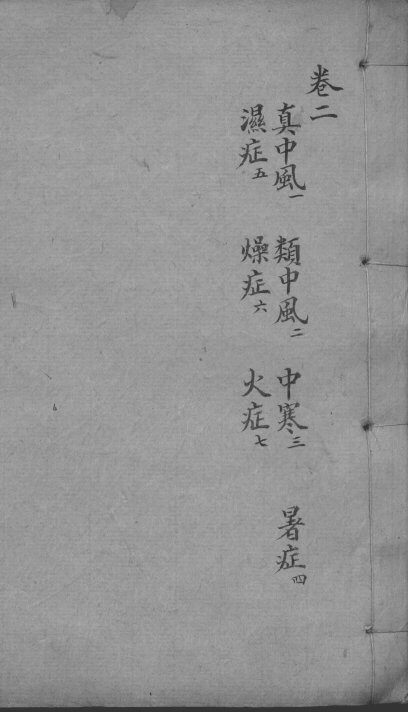 卷二
真中風一 類中風二 中寒三 暑症四
濕症五 燥症六 火症七